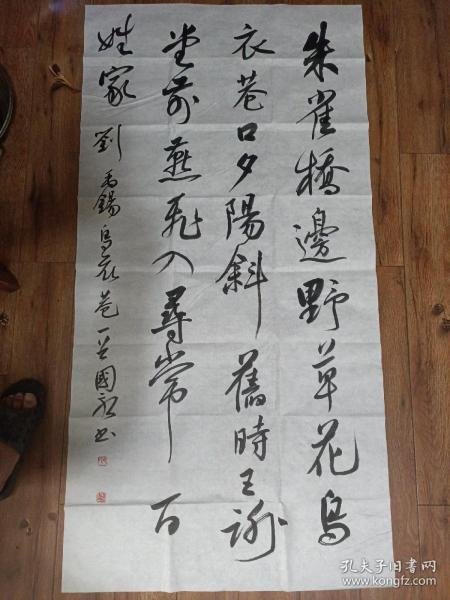 朱雀橋邊野草花烏
衣巷口夕陽斜舊時王謝
堂前燕飛入尋常百
姓家 劉禹錫烏衣巷一首國
孔夫子旧书网
www.kongfz.com